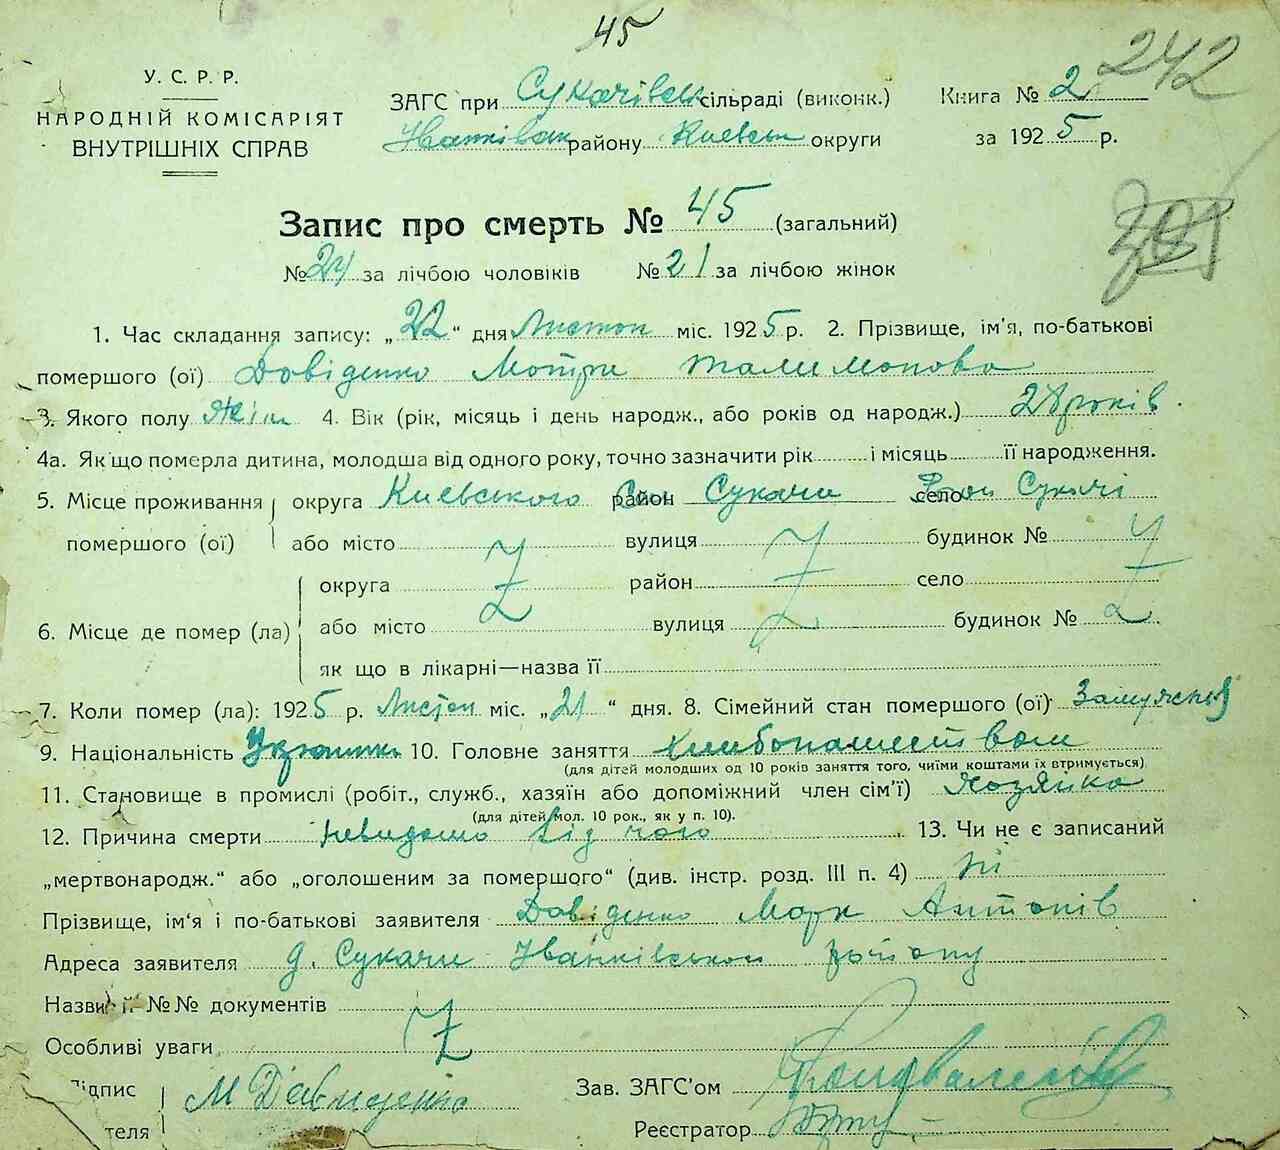 45
242
У. С. Р. Р.
НАРОДНІЙ КОМІСАРІЯТ
ВНУТРІШНІХ СПРАВ
ЗАГС при Сукачівск сільраді (виконк.)
Іванківськ району Киевськ округи
Книга № 2
за 1925 р.
Запис про смерть № 45 (загальний)
№ 24 за лічбою чоловіків № 21 за лічбою жінок
1. Час складання запису: „22“ дня Листоп міс. 1925 р. 2. Прізвище, ім’я, по-батькові
помершого (ої) Довіденко Мотря Талимонова
3. Якого полу Жін 4. Вік (рік, місяць і день народж., або років од народж.) 28 років
4а. Як що померла дитина, молодша від одного року, точно зазначити рік і місяць її народження.
5. Місце проживання помершого (ої) округа Киевського район Сукачи село Сукачі
або місто вулиця будинок №
6. Місце де помер (ла) округа район село
або місто вулиця будинок №
як що в лікарні—назва її
7. Коли помер (ла): 1925 р. Листоп міс. „21“ дня. 8. Сімейний стан помершого (ої) Замужня
9. Національність Украінка 10. Головне заняття хлибопашеством
(для дітей молодших од 10 років заняття того, чиїми коштами їх втримується).
11. Становище в промислі (робіт., служб., хазяїн або допоміжний член сім’ї) Хозяйка
(для дітей мол. 10 рок., як у п. 10).
12. Причина смерти невидомо від чого 13. Чи не є записаний
„мертвонародж.“ або „оголошеним за помершого“ (див. інстр. розд. III п. 4) ні
Прізвище, ім‘я і по-батькові заявителя Довіденко Марк Антонів
Адреса заявителя д. Сукачи Іванківського району
Назви й №№ документів
Особливі уваги
Підпис М Давиденко Зав. ЗАГС’ом
теля Реєстратор